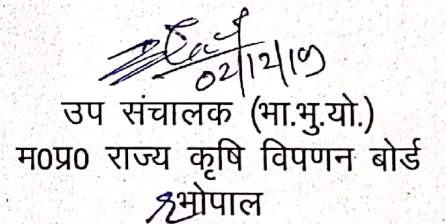 02/12/19
उप संचालक (भा.भु.यो.)
म0प्र0 राज्य कृषि विपणन बोर्ड
भोपाल